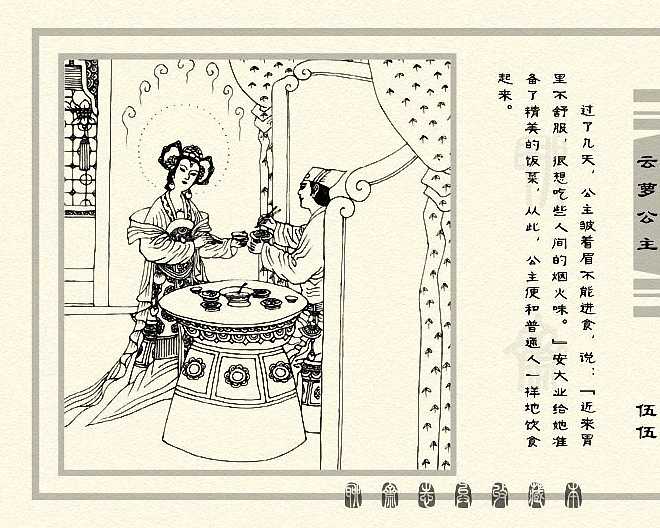 过了几天，公主皱着眉不能进食，说：「近来胃
里不舒服，很想吃些人间的烟火味。」安大业给她准
备了精美的饭菜，从此，公主便和普通人一样地饮食
起来。
云萝公主
伍伍